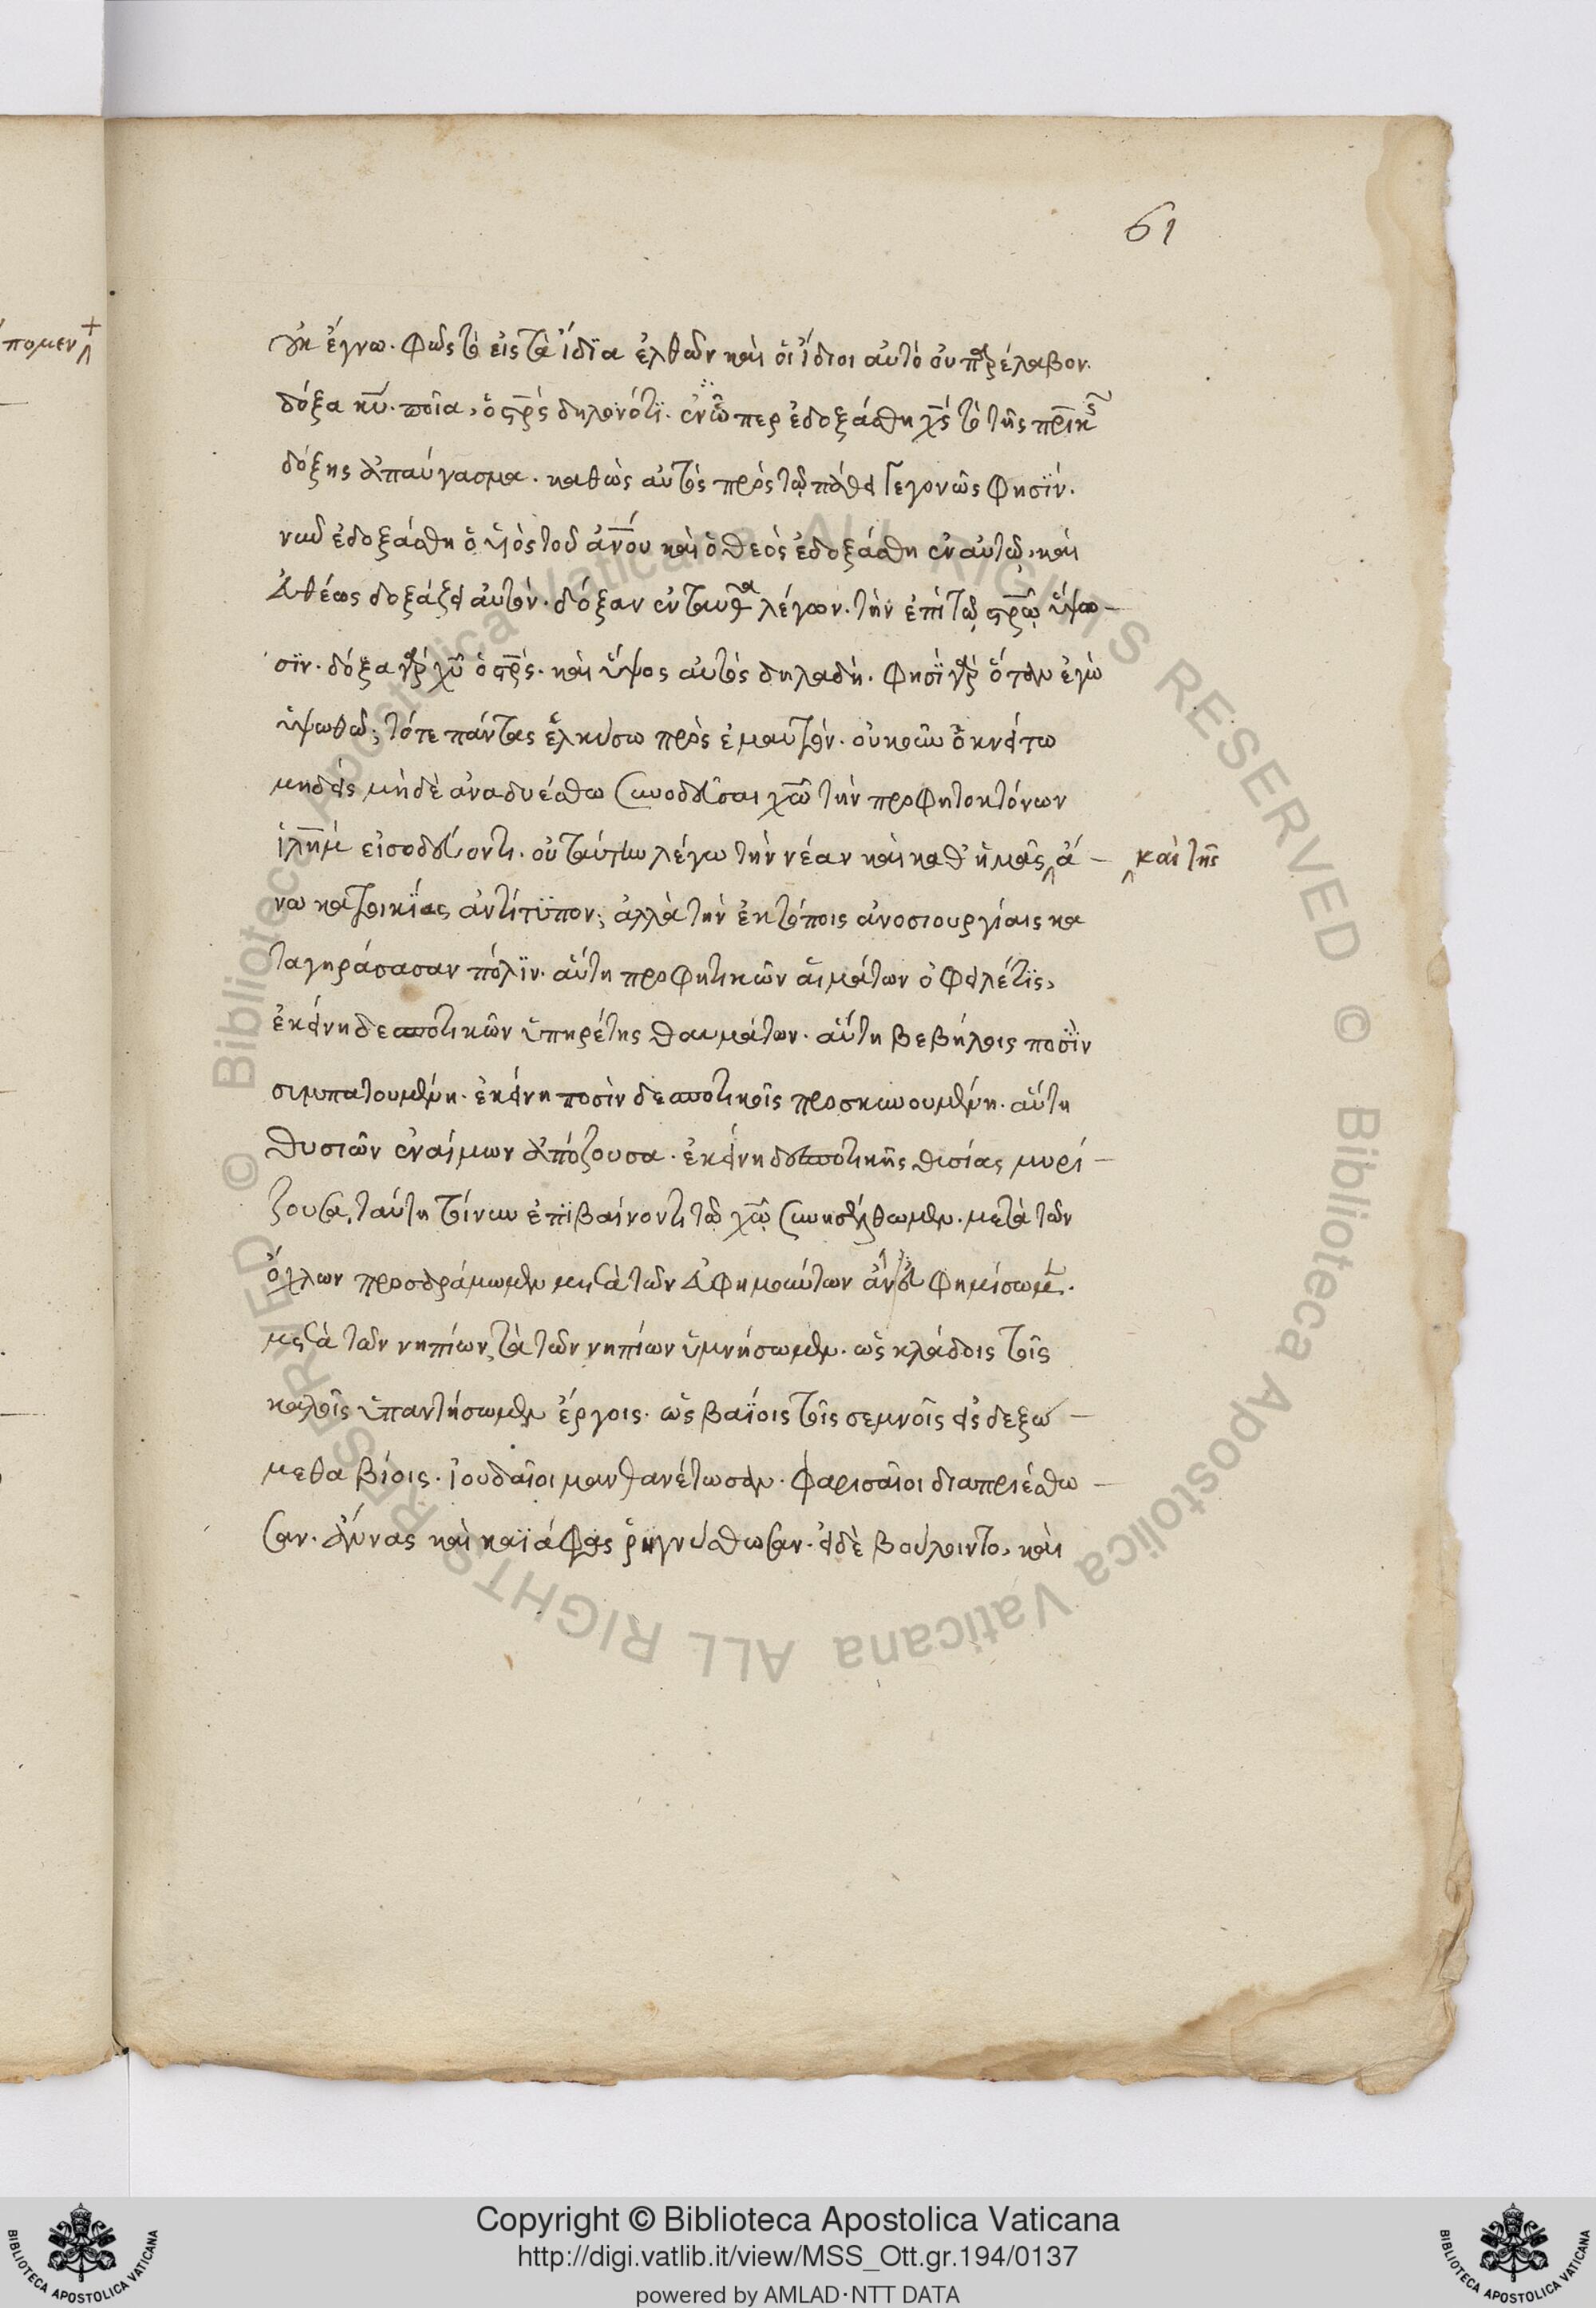 61
πομεν
οὐκ ἔγνω. φῶς τὸ εἰς τὰ ἴδϊα ἐλθὼν καὶ οἱ ἴδιοι αὐτὸ οὐ παρέλαβον.
δόξα κυ̅. ποῖα, ὁ σρ̅ς δηλονότϊ. ἐν ᾧπερ ἐδοξάσθη χς̅ τὸ τῆς πρ̅ικῆς
δόξης ἀπαύγασμα. καθὼς αὐτὸς πρὸς τῷ πάθει γεγονὼς φησϊν.
νῦν ἐδοξάσθη ὁ υἱὸς τοῦ ἀν̅ου καὶ ὁ θεὸς ἐδοξάσθη ἐν αὐτῷ, καὶ
εὐθέως δοξάζει αὐτόν. δόξαν ἐνταῦθα λέγων. τὴν ἐπὶ τῷ σρ̅ῷ ὕψω-
σϊν. δόξα γὰρ χυ̅ ὁ σρ̅ς. καὶ ὕψος αὐτὸς δηλαδὴ. φησὶ γὰρ ὅταν ἐγὼ
ὑψωθῶ, τότε πάντας ἑλκύσω πρὸς ἐμαυτόν. οὐκοῦν ὀκνείτω
μηδεὶς μὴδὲ αναδυέσθω συνοδεῦσαι χω̅ τὴν προφητοκτόνων
ἱλη̅μ εἰσοδεύοντι. οὐ ταύτην λέγω τὴν νέαν καὶ καθ' ἡμᾶς ἄ-
καὶ τῆς
νω κατοικϊας ἀντίτϋπον, ἀλλὰ τὴν ἐκτόποις ἀνοσιουργίαις κα
ταγηράσασαν πόλϊν. αὕτη προφητικῶν αἱμάτων ὀφειλέτϊς,
ἐκείνη δεσποτικῶν ὑπηρέτης θαυμάτων. αὕτη βεβήλοις ποσϊν
συμπατουμένη. ἐκείνη ποσὶν δεσποτικοῖς προσκυνουμένη. αὕτη
θυσιῶν ἐναίμων ἀπόζουσα. ἐκείνη δεσποτικῆς θυσίας μυρί-
ζουσα, ταύτη τοίνυν ἐπϊβαίνοντι τῷ χω̅ συνεισέλθωμεν. μετὰ τῶν
ὄχλων προσδράμωμεν μετὰ τῶν εὐφημούντων φημίσωμεν.
μετὰ τῶν νηπίων, τὰ τῶν νηπίων ὑμνήσωμεν. ὡς κλάδοις τοῖς
καλοῖς ὑπαντήσωμεν ἔργοις. ὡς βαϊοις τοῖς σεμνοῖς εἰσδεξώ-
μεθα βίοις. ἰουδαῖοι μανθανέτωσαν. φαρισαῖοι διαπριέσθω-
σαν. ἄννας καὶ καϊάφας ῥηγνύσθωσαν. εἰ δὲ βούλοιντο, καὶ
Copyright © Biblioteca Apostolica Vaticana
http://digi.vatlib.it/view/MSS_Ott.gr.194/0137
powered by AMLAD·NTT DATA